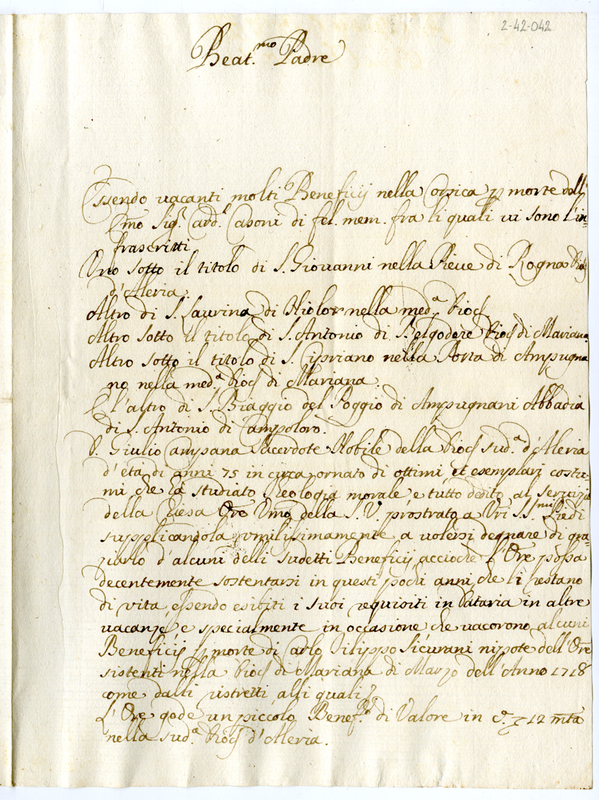 2-42-042
Beat.mo Padre
Essendo vacanti molti Beneficij nella Corsica p morte dell
Emo Sig.r Card.l Casoni di fel. mem. fra li quali vi sono l'in=
frascritti
Uno sotto il titolo di S. Giovanni nella Pieve di Rogna Dioc
d'Aleria
Altro di S. Laurina di Niolo nella med.a Dioc
Altro sotto il titolo di S. Antonio di Belgodere Dioc di Mariana
Altro sotto il titolo di S. Cipriano nella Porta di Ampugna
no nella med.a Dioc di Mariana
E l'altro di S. Biaggio del Poggio di Ampugnani Abbadia
di S. Antonio di Campoloro.
P. Giulio Campana Sacerdote Nobile della Dioc sud.a d'Aleria
d'età di anni 75 in circa ornato di ottimi, et esemplari costu=
mi che hà studiato Teologia morale e tutto dedito al servizio
della Chiesa Ore Umo della S. V. prostrato a Vri SSmi Piedi
supplicandola umilissimamente a volersi degnare di gra=
ziarlo d'alcuni delli sudetti Beneficij acciochè l'Ore possa
decentemente sostentarsi in questi pochi anni che li restano
di vita, essendo esibiti i suoi requisiti in Dataria in altre
vacanze e specialmente in occasione che vacorono alcuni
Beneficij p morte di Carlo Filippo Sicurani nipote dell'Ore
sistenti nella Dioc di Mariana di Marzo dell'Anno 1718
come dalli ristretti alli quali
L'Ore gode un piccolo Benef.o di Valore in c.a 12 mta
nella sud.a Dioc d'Aleria.